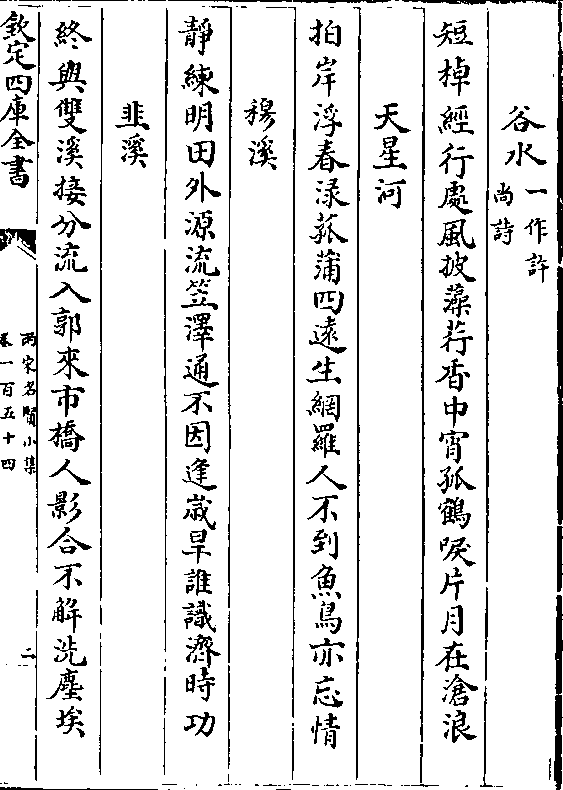 谷水一作許
尚詩
短棹經行處風披藻荇香中宵孤鶴唳片月在滄浪
天星河
拍岸浮春渌菰蒲四遠生網羅人不到魚鳥亦忘情
穆溪
靜練明田外源流笠澤通不因逢歲旱誰識濟時功
韭溪
終與雙溪接分流入郭來市橋人影合不解洗塵埃
欽定四庫全書
兩宋名賢小集
卷一百五十四
二